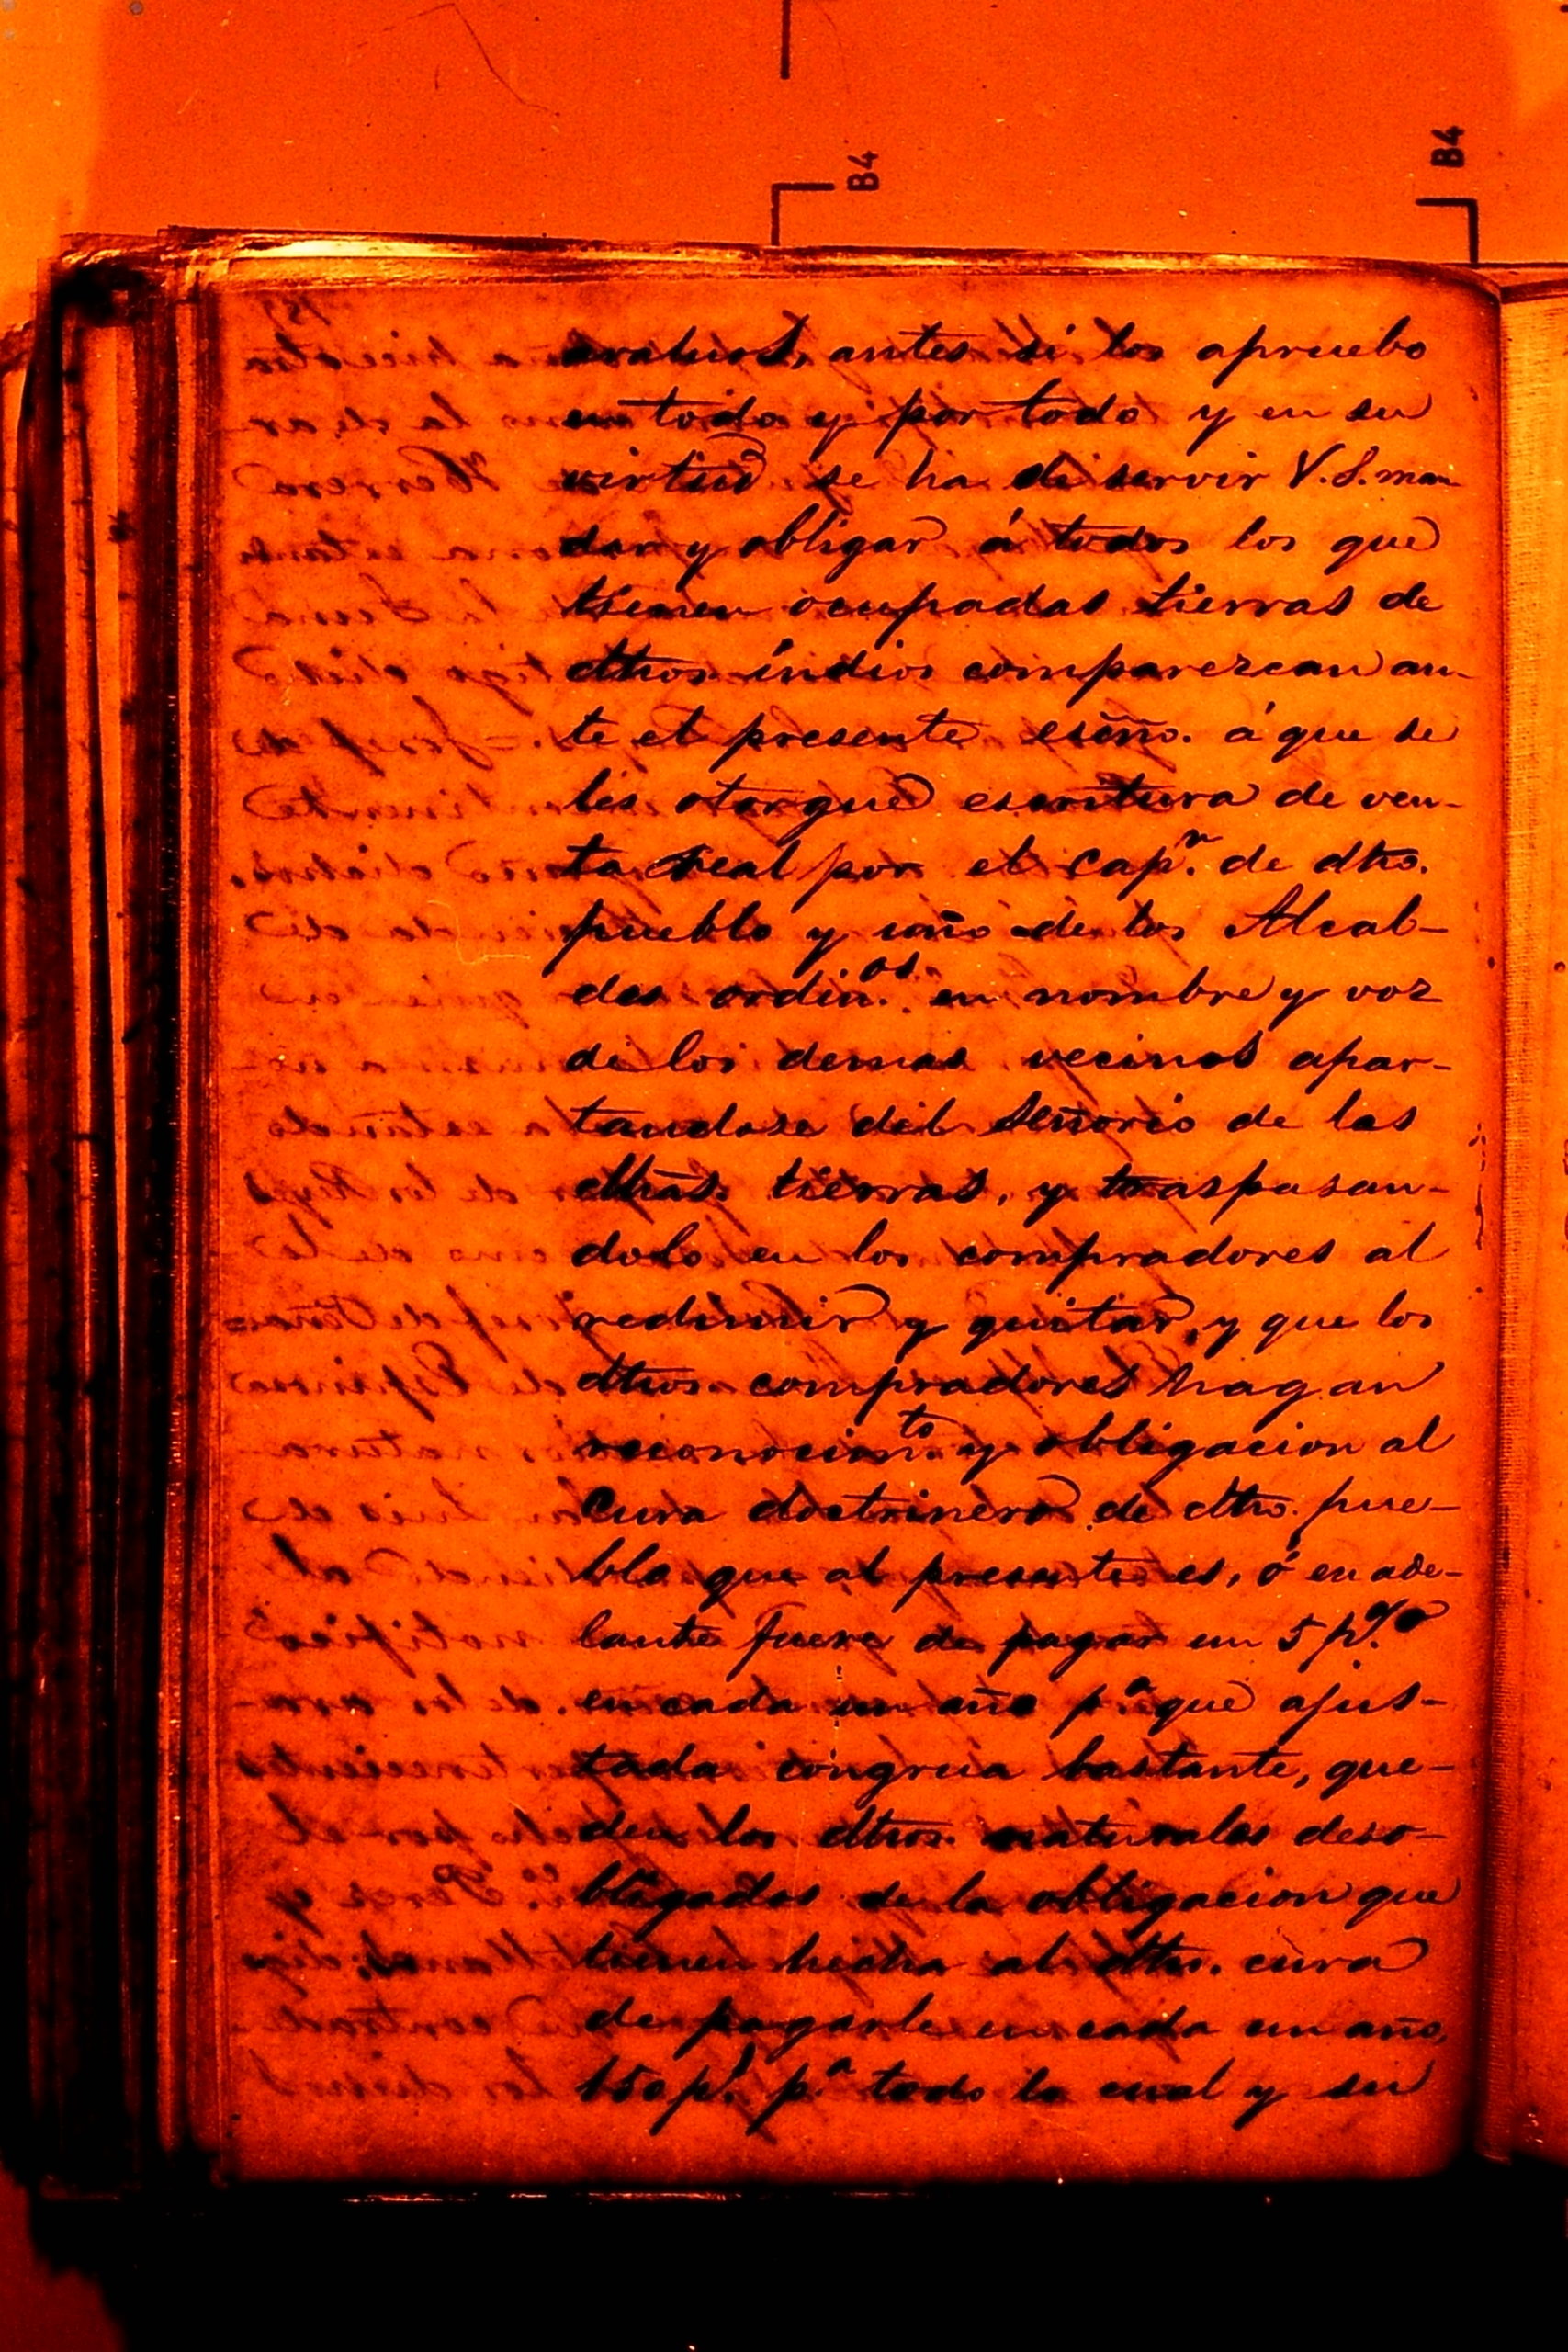 B4
B4
avaluos, antes si los apruebo
en todo y por todo y en su
virtud se ha de servir V.S. man-
dar y obligar á todos los que
tienen ocupadas tierras de
dthos indios comparezcan an-
te el presente essño. á que se
les otorgue escritura de ven-
ta real por el capn. de dtho.
pueblo y uno de los Alcal-
des ordin.os en nombre y voz
de los demas vecinos apar-
tandose del Señorio de las
dthas tierras, y traspasan-
dolo en los compradores al
redimir y quitar, y que los
dthos compradores hagan
reconocimto y obligacion al
Cura doctrinero de dtho. pue-
blo que al presente es, ó en ade-
lante fuere de pagar un 5 p.%
en cada un año pa. que ajus-
tada congrua bastante, que-
den los dthos. naturales deso-
bligados de la obligacion que
tienen hecha al dtho. cura
de pagarle en cada un año,
150 ps. pa. todo lo cual y su